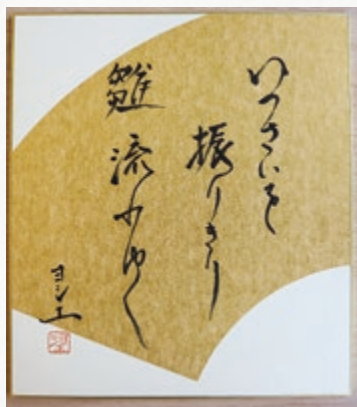 いつさいを
振りきり
雛 流れゆく
ヨシエ